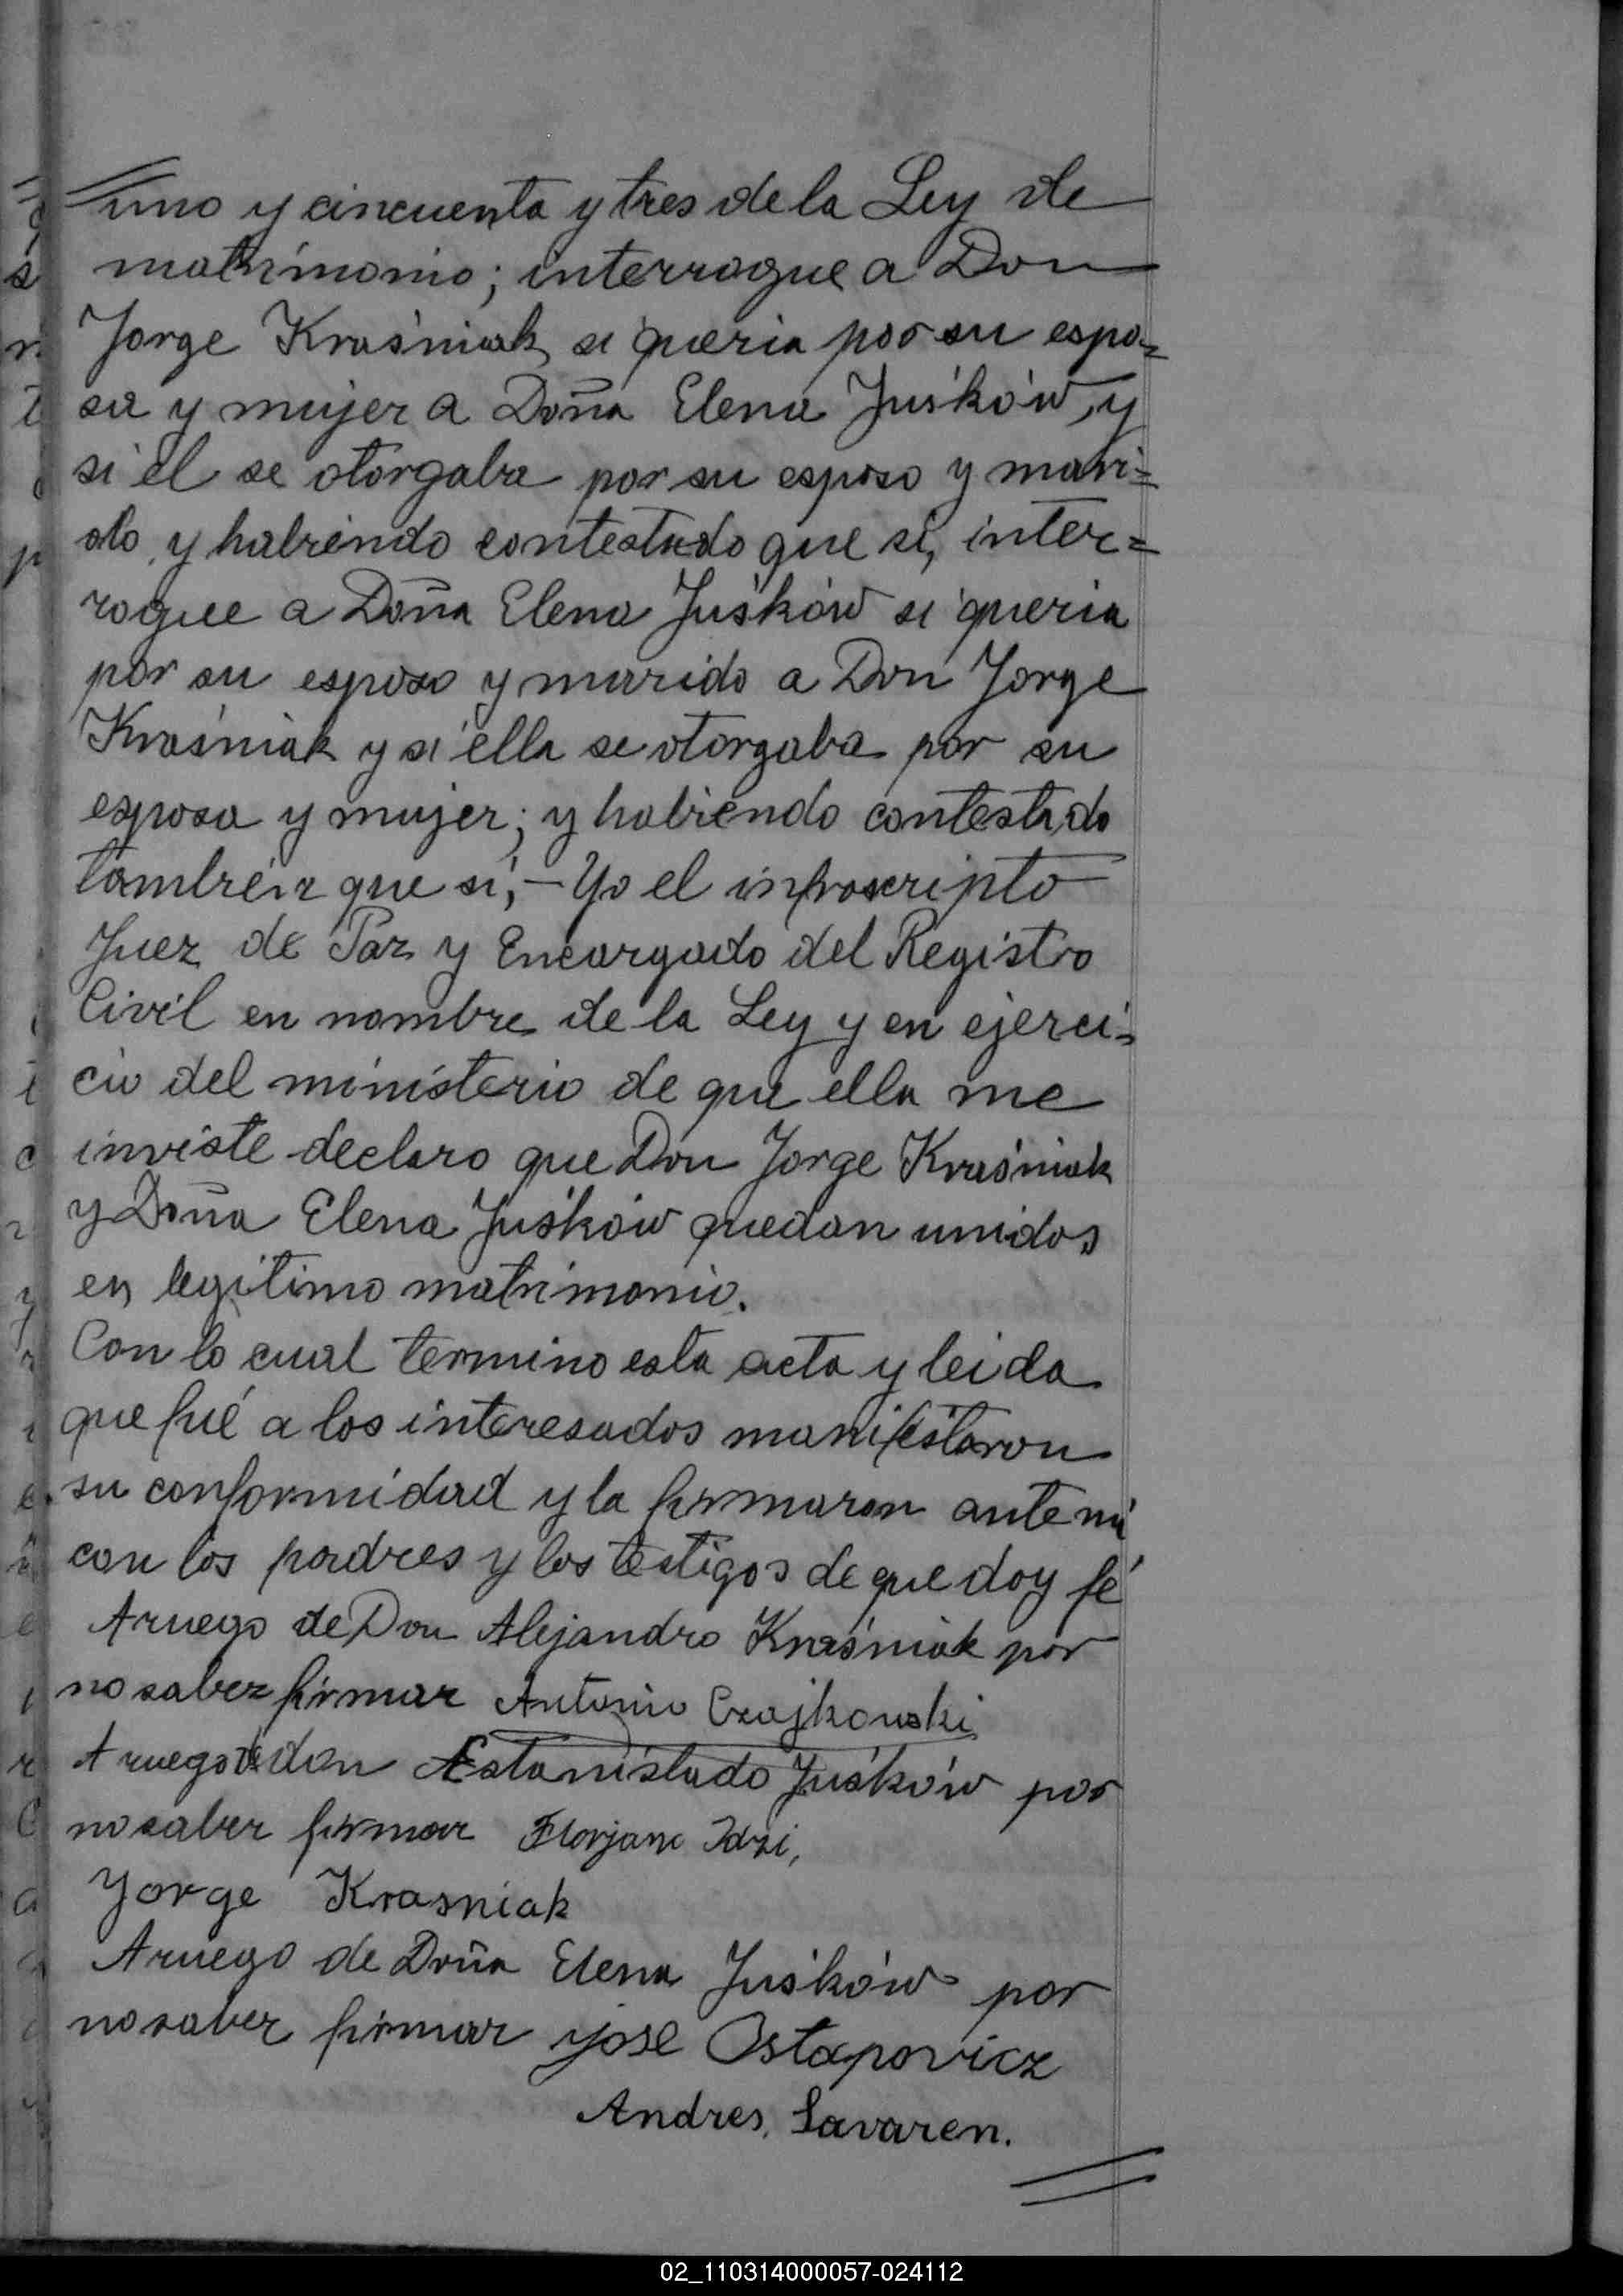 uno y cincuenta y tres de la Ley de
matrimonio; interrogue a Don
Jorge Kraśniak si queria por su espo=
sa y mujer a Doña Elena Juśków, y
si él se otorgaba por su esposo y mari=
do, y habiendo contestado que si, inter=
rogue a Doña Elena Juśków si queria
por su esposo y marido a Don Jorge
Kraśniak y si ella se otorgaba por su
esposa y mujer; y habiendo contestado
tambien que si; – Yo el infrascripto
Juez de Paz y Encargado del Registro
Civil en nombre de la Ley y en ejerci=
cio del ministerio de que ella me
inviste declaro que Don Jorge Kraśniak
y Doña Elena Juśków quedan unidos
en legitimo matrimonio.
Con lo cual termino esta acta y leida
que fué a los interesados manifestaron
su conformidad y la firmaron ante mi
con los padres y los testigos de que doy fé
Aruego de Don Alejandro Kraśniak por
no saber firmar Antonio Czajkowski
Aruego de don Estanislado Juśków por
no saber firmar Florjane Idzi,
Jorge Krasniak
Aruego de Doña Elena Juśków por
no saber firmar José Ostapovicz
Andres, Lavaren.
02_110314000057-024112